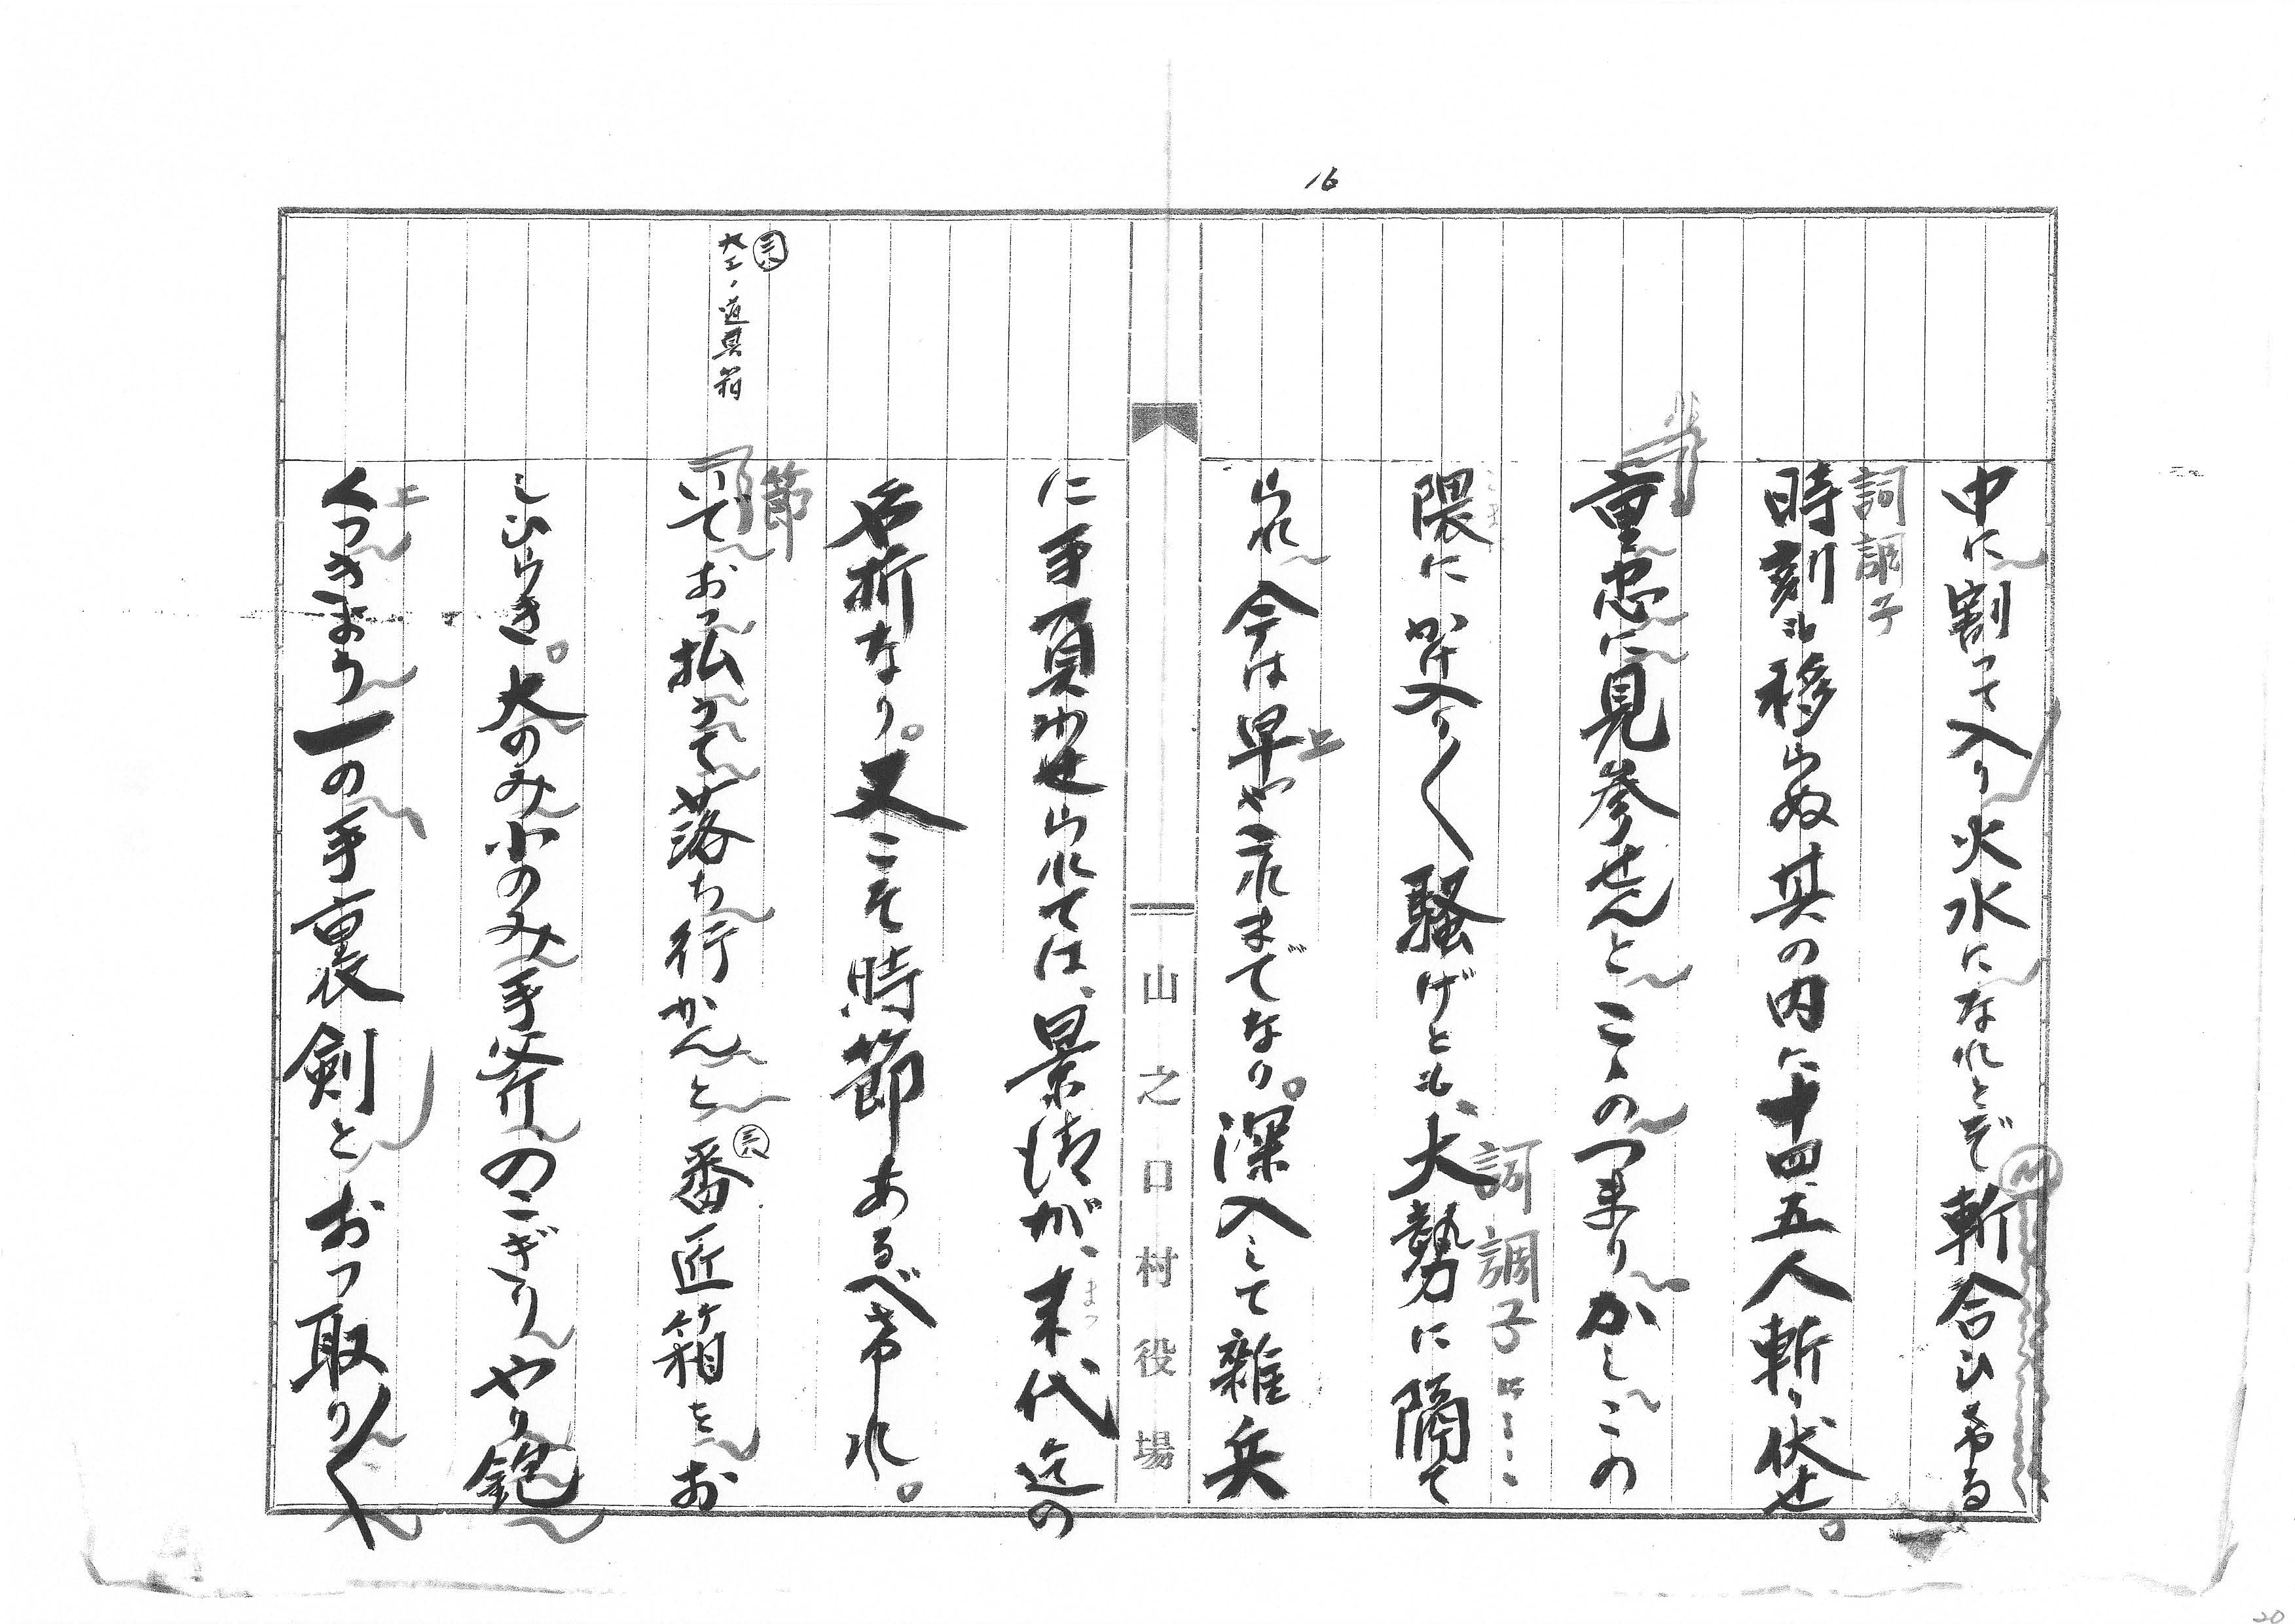 16
中に割って入り火水になれとぞ斬合ひける
詞調子
時刻も移らぬ其の内に十四、五人斬り伏せ。
重忠に見参せんとこゝのつまりかしこの
隈にかけ入り〱騒げども、大勢に隔て
詞調子
られ今は早や之れまでなり。深入して雑兵
上
山之口村役場
に手負わせられては、景清が、末代迄の
名折なり。又こそ時節あるべけれ。
節
いでおっ払うて落ち行かんと番匠箱をお
大工ノ道具箱
しひらき。大のみ小のみ手斧のこぎりやり鉋
上
くっきまり一の手裏剣とおっ取り〱
20